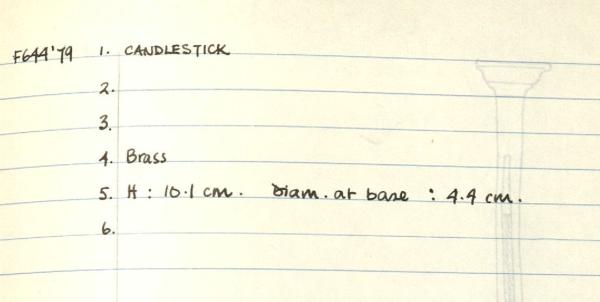 F644'79 1. CANDLESTICK
2.
3.
4. Brass
5. H : 10.1 cm. Diam. at base : 4.4 cm.
6.